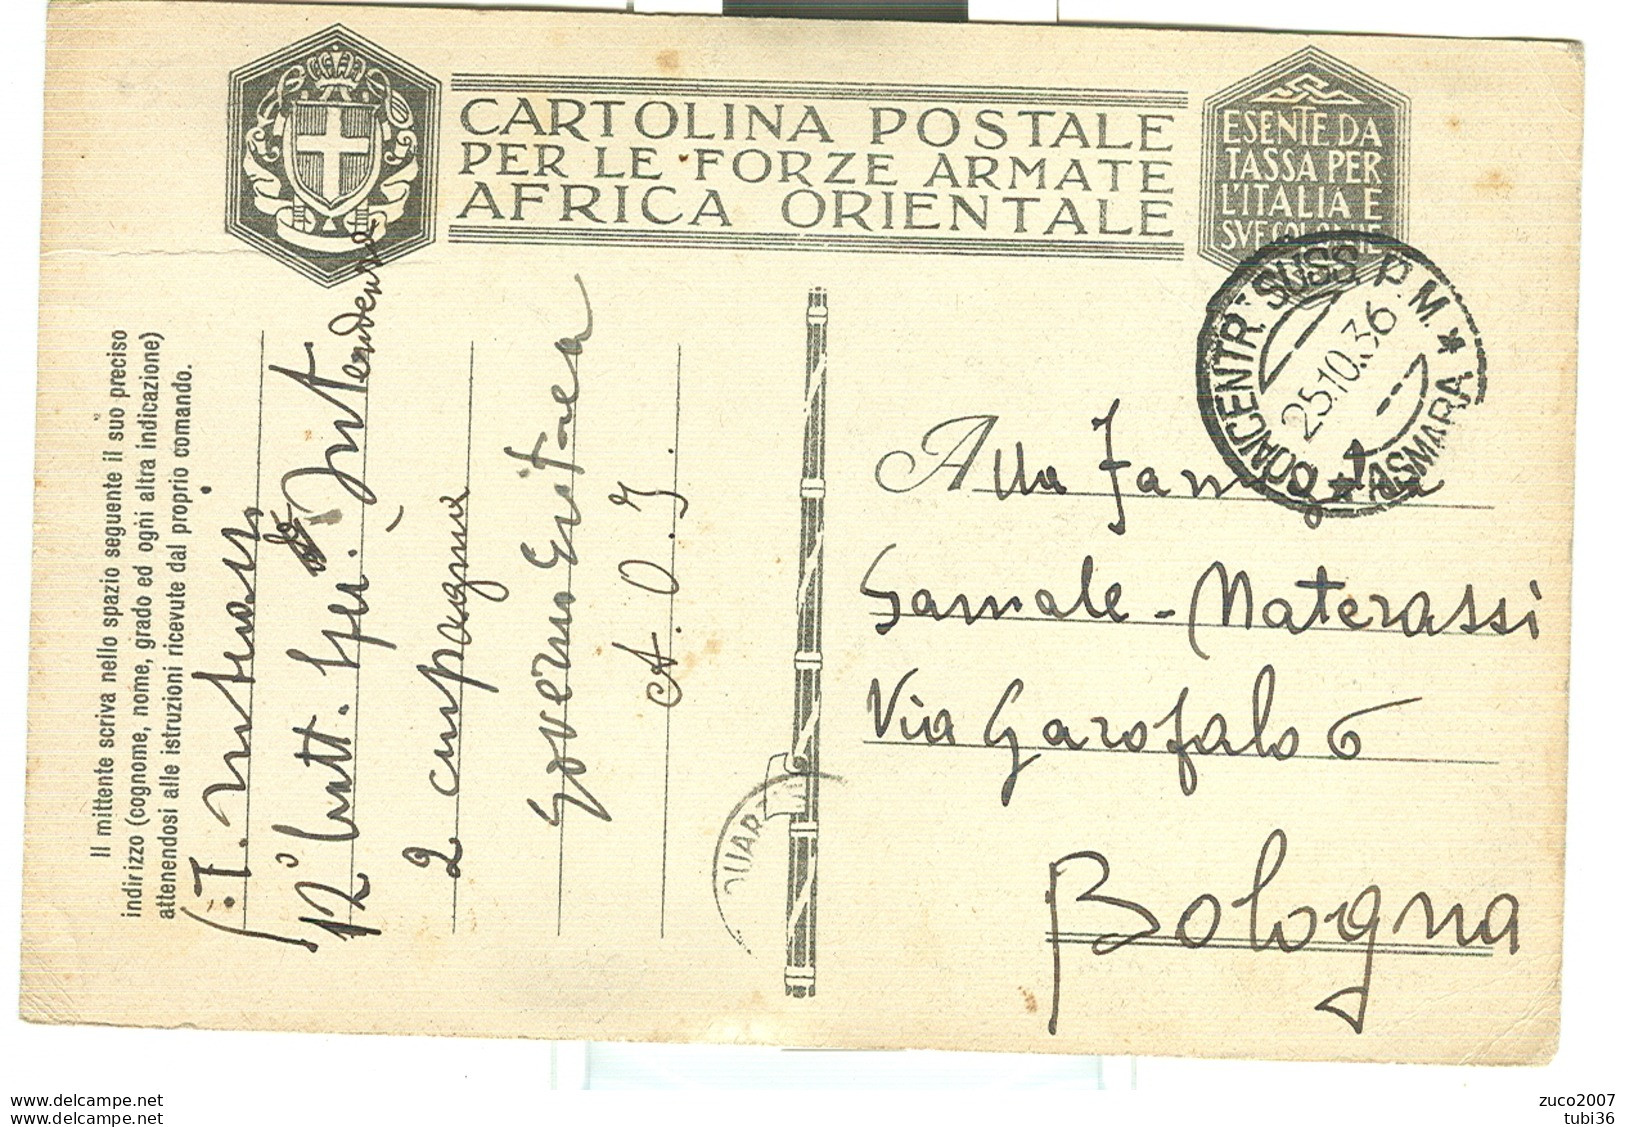 CARTOLINA POSTALE
PER LE FORZE ARMATE
AFRICA ORIENTALE
ESENTE DA
TASSA PER
L'ITALIA E
SVE COLONIE
CONCENTR. SUSS. P. M. * ASMARA *
25.10.36
Il mittente scriva nello spazio seguente il suo preciso
indirizzo (cognome, nome, grado ed ogni altra indicazione)
attenendosi alle istruzioni ricevute dal proprio comando.
S.T.
12° Intendenza
2 compagnia
Governo Eritrea
A. O. I.
Alla Famiglia
Samale - Materassi
Via Garofalo 6
Bologna
QUAR
delcampe.net
delcampe.net
zuco2007
tubi36